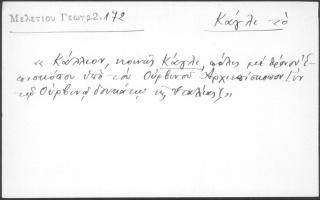 Μελετίου Γεωγρ. 2, 172
Κάγλι τό
« Κάλλιον, κοινῶς Κάγλι, πόλις μέ θρόνον Ἐ-
πισκόπου ὑπό τόν Οὐρβίνου Ἀρχιεπίσκοπον [ἐν
τῷ Οὐρβίνῳ δουκάτῳ τῆς Ἰταλίας] »